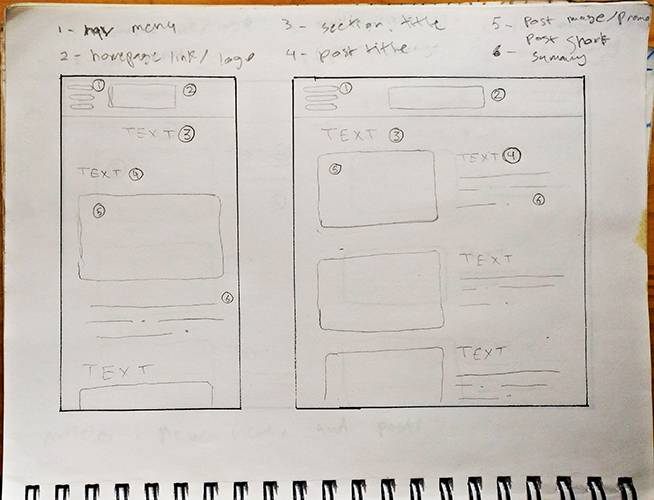 1 - nav menu
2 - homepage link / logo
3 - section title
4 - post title
5 - Post image/promo
6 - Post short summary
① ②
TEXT ③
TEXT ④
⑤
⑥
TEXT
① ②
TEXT ③
⑤ TEXT ④
⑥
TEXT
TEXT